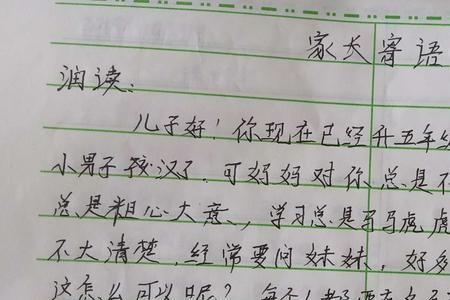 家长寄语
润读：
儿子好！你现在已经升五年级
小男子孩汉了，可妈妈对你总是不
总是粗心大意，学习总是马马虎虎
不大清楚，经常要问妹妹，好多
这怎么可以呢？每个人都要有